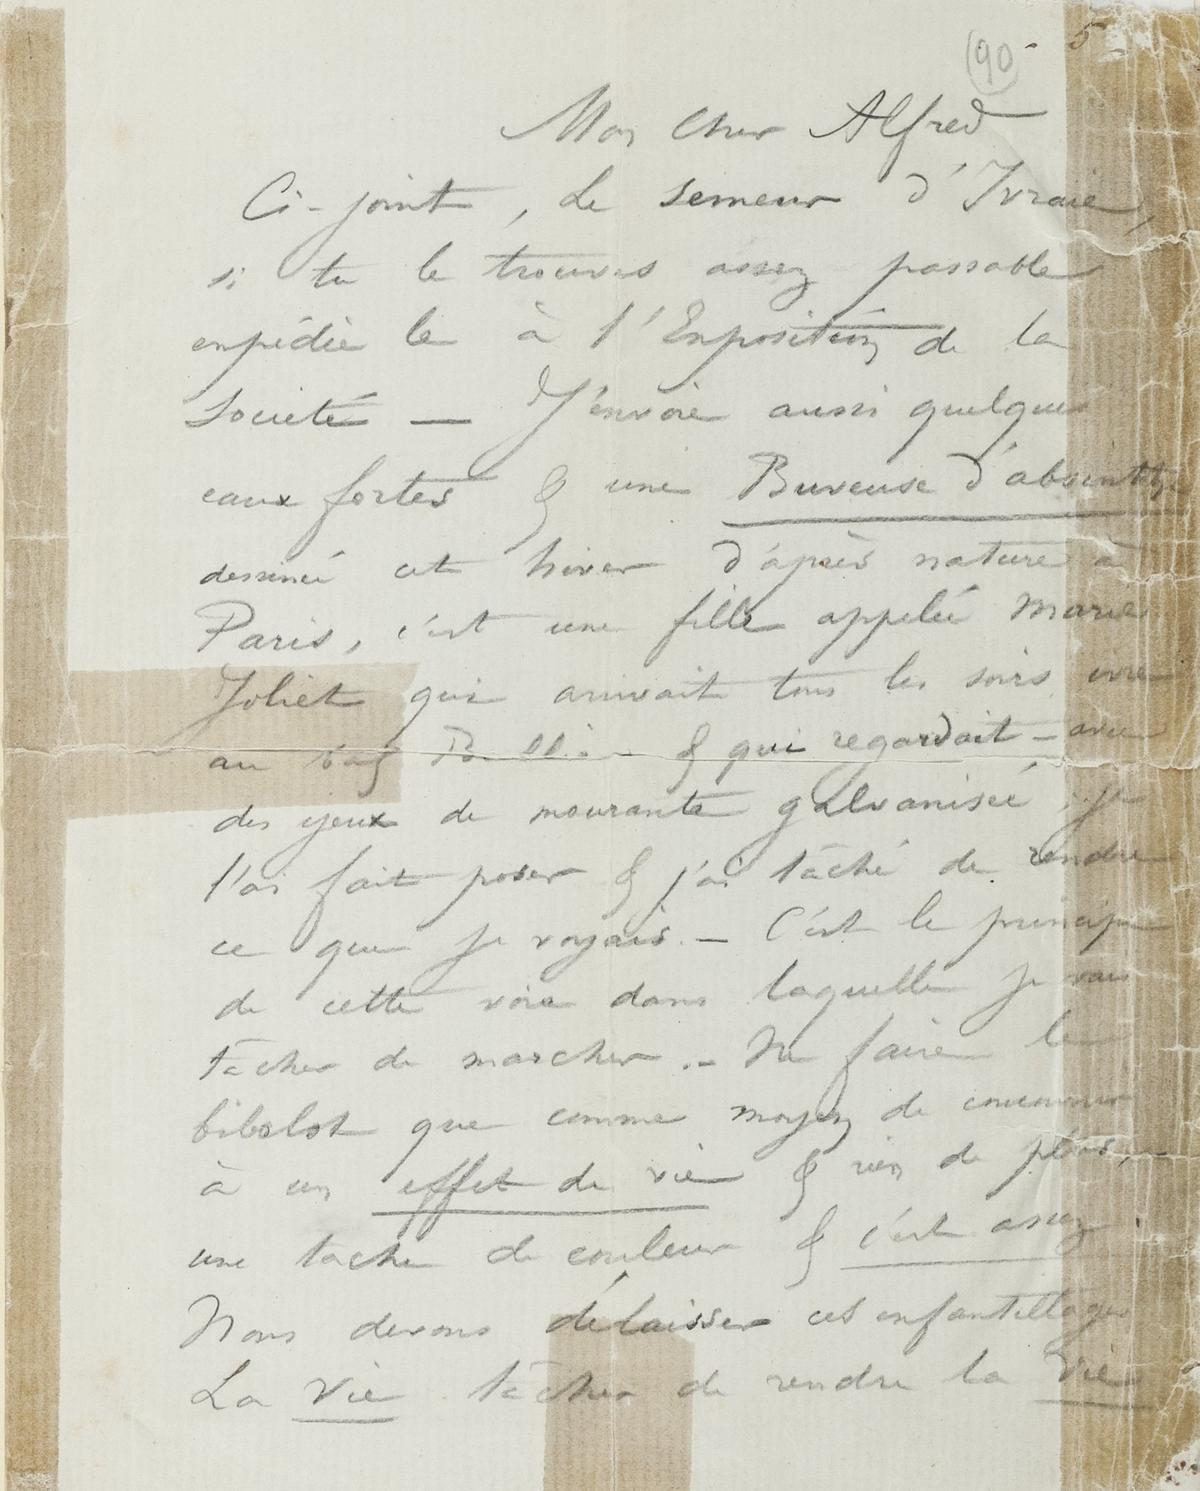 (90)
5
Mon cher Alfred
Ci-joint, Le Semeur d'Ivraie,
si tu le trouves assez passable
expédie le à l'Exposition de la
Société — J'envoie aussi quelques
eaux fortes & une Buveuse d'absinthe
dessinée cet hiver d'après nature à
Paris, c'est une fille appelée Marie
Joliet qui arrivait tous les soirs ivre
au bal Bullier & qui regardait – avec
des yeux de mourante galvanisée, je
l'ai fait poser & j'ai tâché de rendre
ce que je voyais. – C'est le principe
de cette voie dans laquelle je vais
tâcher de marcher. – Ne faire le
bibelot que comme moyen de concourir
à un effet de vie & rien de plus,
une tache de couleur & c'est assez
Nous devons délaisser ces enfantillages
La Vie tâcher de rendre la Vie